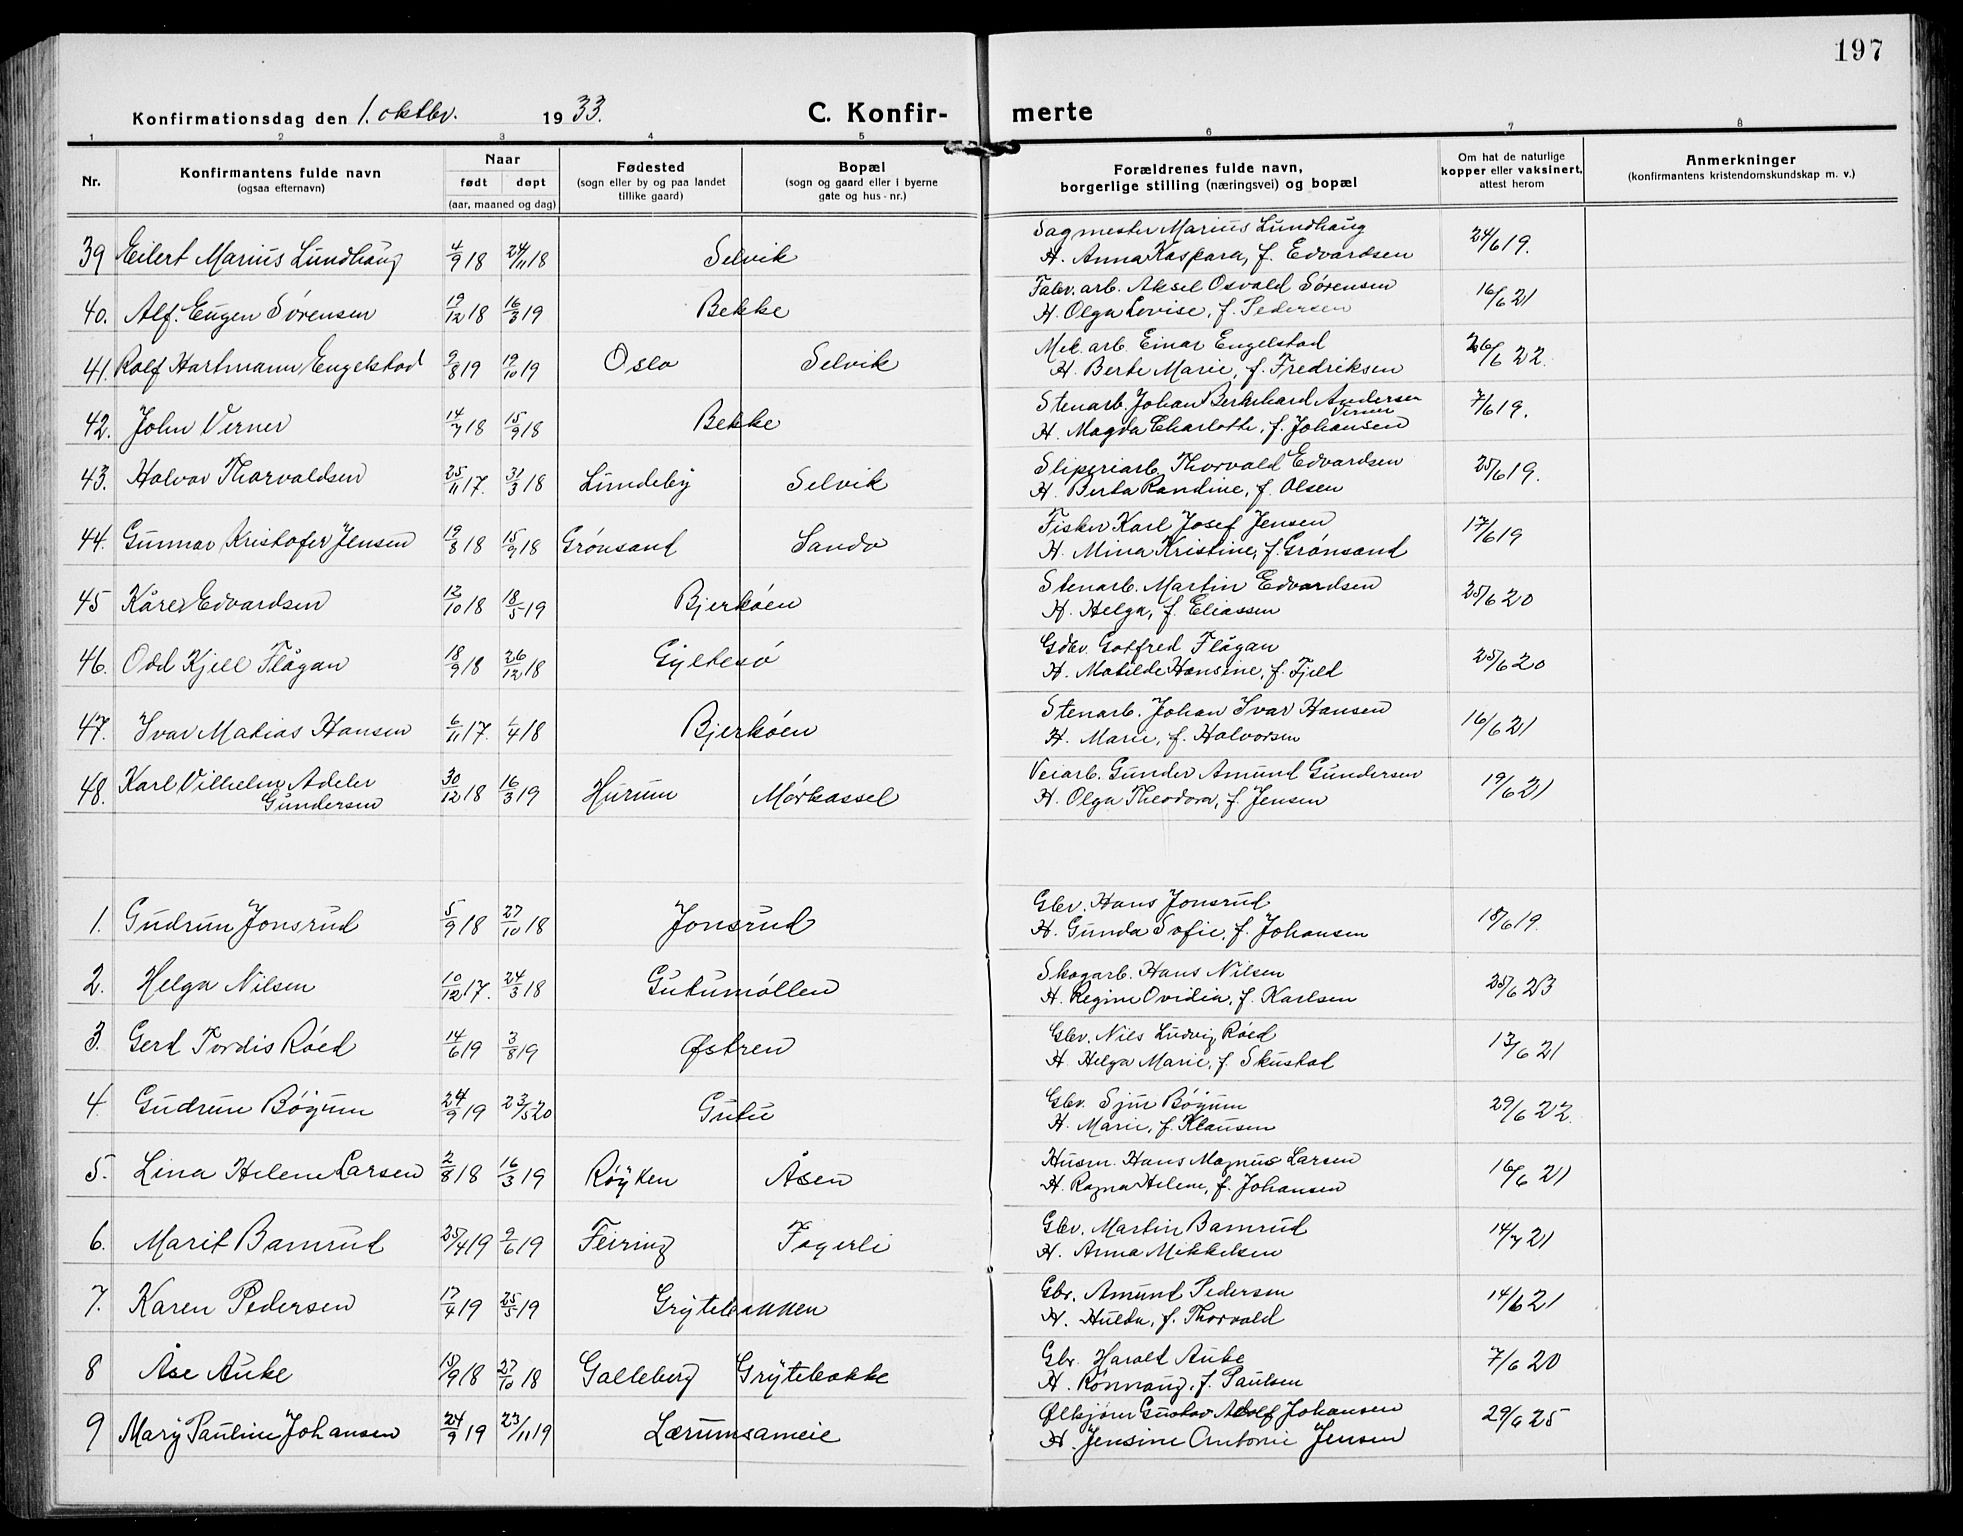 197
Konfirmationsdag den 1. oktbr. 1933. C. Konfir- merte
1 2 3 4 5 6 7 8
Nr. Konfirmantens fulde navn (ogsaa efternavn) Naar født døpt (aar, maaned og dag) Fødested (sogn eller by og paa landet tillike gaard) Bopæl (sogn og gaard eller i byerne gate og hus-nr.) Forældrenes fulde navn, borgerlige stilling (næringsvei) og bopæl Om hat de naturlige kopper eller vaksinert, attest herom Anmerkninger (konfirmantens kristendomskundskap m. v.)
39 Eilert Marius Lundhaug 4/9 18 24/11 18 Selvik Sagmester Marius Lundhaug 24/6 19.
H. Anna Kaspara, f. Edvardsen
40. Alf Eugen Sørensen 19/12 18 16/3 19 Bekke Fabr. arb. Aksel Osvald Sørensen 16/6 21
H. Olga Lovise, f. Pedersen
41. Rolf Hartmann Engelstad 9/8 19 19/10 19 Oslo Selvik Mek. arb. Einar Engelstad 26/6 22.
H. Berte Marie, f. Fredriksen
42. John Verner 14/7 18 15/9 18 Bekke Stenarb. Johan Berhard Andersen 7/6 19.
Verner
H. Magda Charlotte, f. Johansen
43. Halvor Thorvaldsen 25/11 17. 31/3 18 Lundeby Selvik Sliperiarb. Thorvald Edvardsen 25/6 19.
H. Berta Randine, f. Olsen
44. Gunnar Kristofer Jensen 19/8 18 15/9 18 Grønsand Sando Fisker Karl Josef Jensen 17/6 19
H. Mina Kristine, f. Grønsand
45 Kåre Edvardsen 12/10 18 18/5 19 Bjerkøen Stenarb. Martin Edvardsen 25/6 20
H. Helga, f. Eliassen
46. Odd Kjell Flågan 18/9 18 26/12 18 Gyltesø Gdbr. Gotfred Flågan 25/6 20
H. Matilde Hansine, f. Fjeld
47. Ivar Matias Hansen 6/11 17. 1/4 18 Bjerkøen Stenarb. Johan Ivar Hansen 16/6 21
H. Marie, f. Halvorsen
48. Karl Vilhelm Adeler 30/12 18 16/3 19 Hurum Mørkassel Veiarb. Gunder Amund Gundersen 19/6 21
Gundersen H. Olga Theodora, f. Jensen
1. Gudrun Jonsrud 5/9 18 27/10 18 Jonsrud Gbr. Hans Jonsrud 18/6 19.
H. Gunda Sofie, f. Johansen
2. Helga Nilsen 10/12 17. 24/3 18 Gutumøllen Skogarb. Hans Nilsen 25/6 23
H. Regine Ovidia, f. Karlsen
3. Gerd Tordis Røed 14/6 19 3/8 19 Østren Gbr. Nils Ludvig Røed 13/6 21
H. Helga Marie, f. Skustad
4. Gudrun Bøgum 24/9 19 23/5 20 Gutu Gbr. Sjur Bøgum 29/6 22.
H. Marie, f. Klausen
5. Lina Helene Larsen 2/8 18 16/3 19 Røyken Åsen Husm. Hans Magnus Larsen 16/6 21
H. Ragna Helene, f. Johansen
6. Marit Bamrud 25/4 19 9/6 19 Feiring Fagerli Gbr. Martin Bamrud 14/7 21
H. Anna Mikkelsen
7. Karen Pedersen 17/4 19 25/5 19 Grytebakken Gbr. Amund Pedersen 14/6 21
H. Hulda, f. Thorvald
8 Åse Auke 15/9 18 27/10 18 Galleberg Grytebakke Gbr. Harald Auke 7/6 20
H. Rønnaug, f. Paulsen
9 Mary Pauline Johansen 24/9 19 23/11 19 Lærumsameie Ølkjører Gustav Adolf Johansen 29/6 25
H. Jensine Antonie Jensen